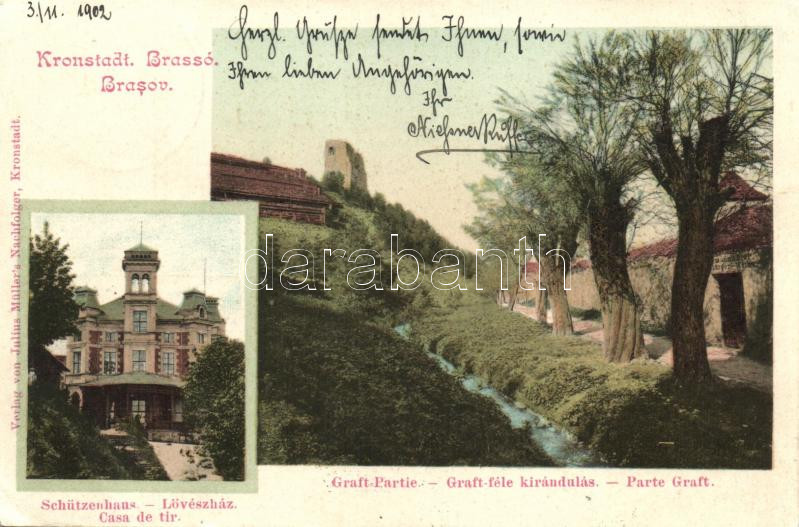 3./11. 1902
Herzl. Grüsze sendet Ihnen, sowie
Ihren lieben Angehörigen.
Ihr
Kronstadt. Brassó.
Brașov.
Verlag von Julius Müller's Nachfolger, Kronstadt.
darabanth
Graft-Partie. – Graft-féle kirándulás. – Parte Graft.
Schützenhaus. – Lövészház.
Casa de tir.